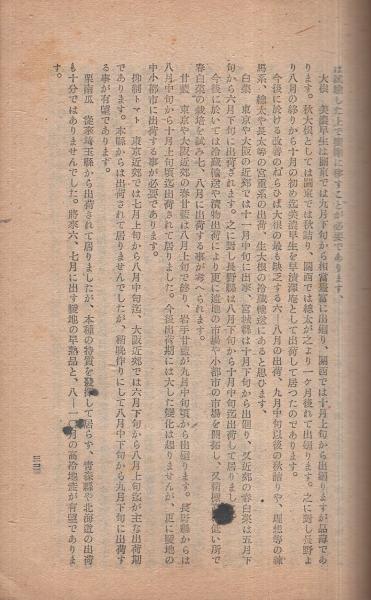 は試験した上で實際に移すことが必要であります。
大根　美濃早生は關東では九月下旬から相當豐富に出廻り、關西では十月上旬から出廻りますが品薄であ
ります。秋大根としては關東では秋詰り、關西では總太が之より一ケ月後れて出廻ります。之に對し長野よ
り八月の終りから十月の初め迄美濃早生を早漬澤庵として出荷して居つたのであります。
今後に於ける改善のねらひは大根の最も缺乏する六ー八月の出荷、九月中旬以後の秋詰りや、理想等の練
馬系、總太や長太等の宮重系の出荷、生大根の冷藏輸送にあると思ひます。
白菜　東京や大阪の近郊では十一月中旬に出事、宮城縣は十月下旬から出廻り、又近郊の春白菜は五月下
旬から六月下旬に出荷されます。之に對し長野縣は八月下旬から十月中旬迄出荷して居りまし
今後に於いては冷藏輸送や積物出荷により更に遠地の市場や小都市の市場を開拓し、又新 い所で
春白菜の栽培を試み七、八月に出荷する事が考へられます。
甘藍　東京や大阪近郊の春甘藍は八月上旬で終り、岩手甘藍が九月中旬頃から出廻ります。長野縣からは
八月中旬から十月上旬頃迄出荷されて居りました。今後出荷期には大した變化は起りませんが、更に暖地の
中小都市に出荷する事が必要であります。
抑制トマト　東京近郊では七月上旬から八月中旬迄、大阪近郊では六月下旬から八月上旬迄が主な出荷期
であります。本縣からは出荷されて居りませんでしたが、新晩作りにして八月中下旬から九月下旬に出荷す
る事が有望であります。
栗南瓜　從來埼玉縣から出荷されて居りましたが、本種の特質を發揮して居らず、靑森縣や北海道の出荷
も十分ではありませんでした。將來六、七月に出す暖地の早熟品と、八ー一〇月の高冷地產が有望でありま
す。
三三